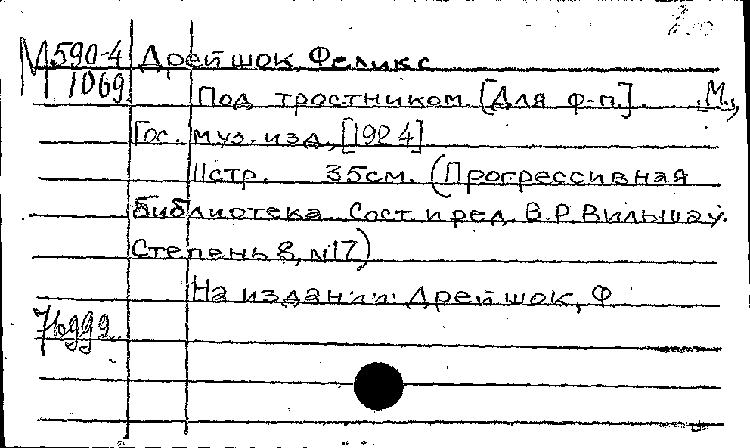 М 590-4 Дрейшок, Феликс
1069
Под тростником [Для ф-п.] .М.,
Гос. муз. изд., [1924]
11стр. 35см. (Прогрессивная
библиотека Сост. и ред. В.Р.Вильшау.
Степень 8, №17)
На издании: Дрейшок, Ф
76999